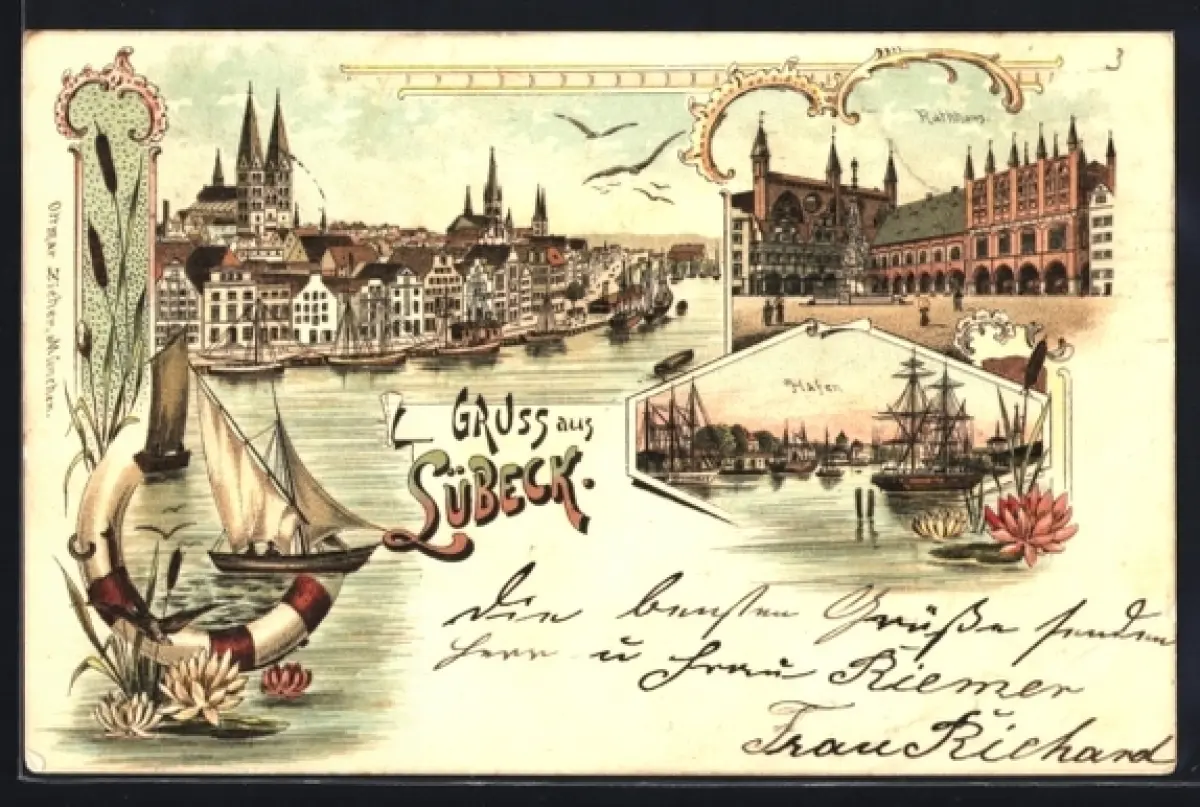 3
Rathhaus.
Ottmar Zieher, München.
Hafen
GRUSS aus
LÜBECK.
Die bensten Grüße senden
Herr u Frau Riemer
Frau Richard